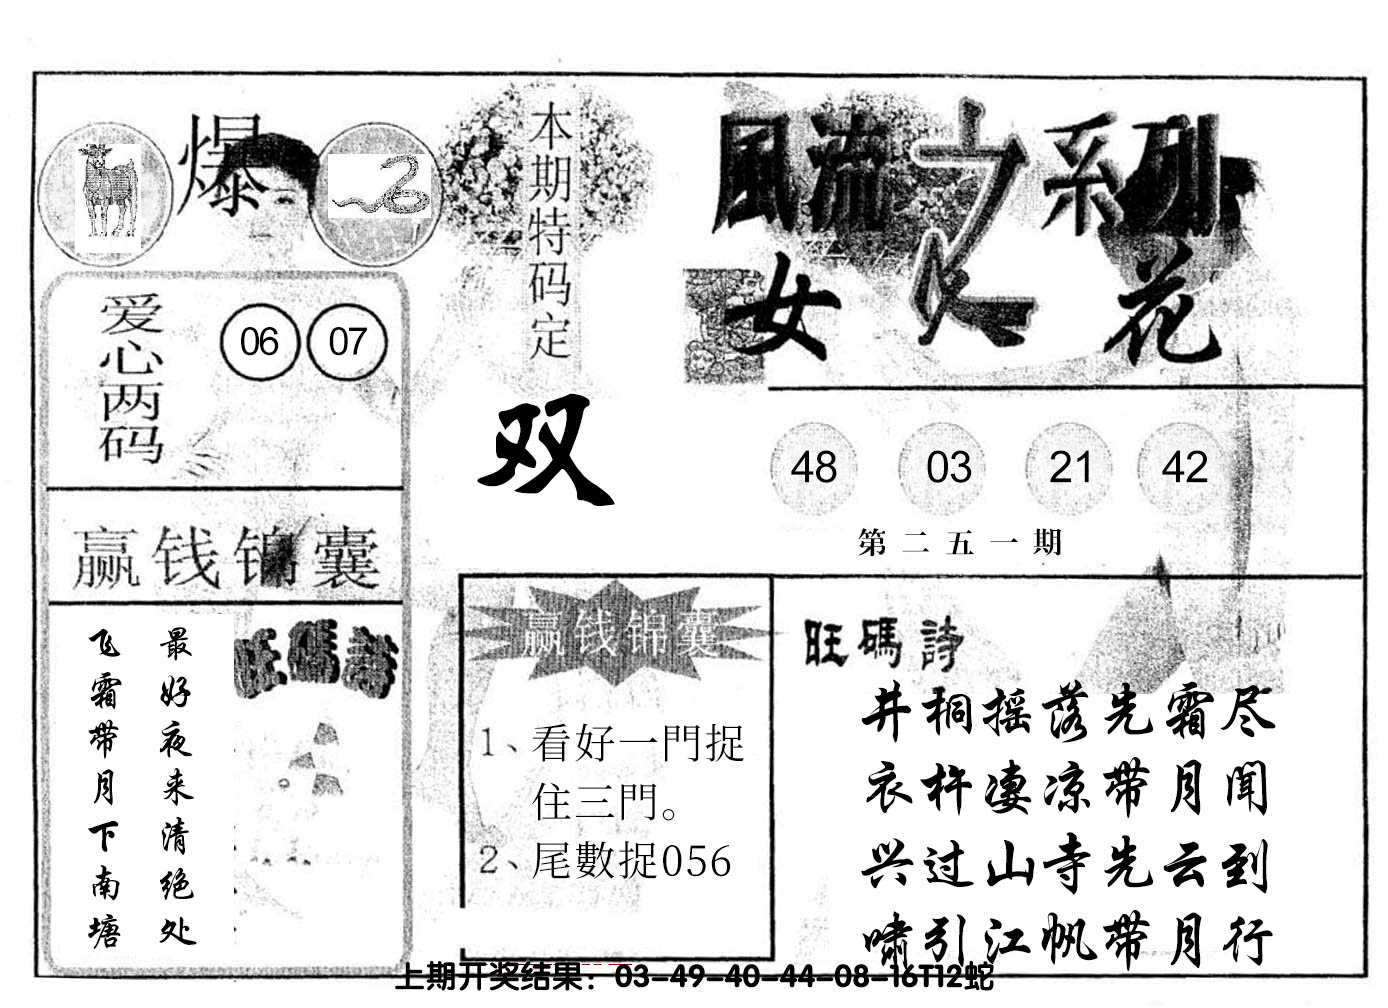 爆
本期特码定
双
風流之系列
女人花
爱心两码
06 07
48 03 21 42
第二五一期
赢钱锦囊
旺碼詩
最好夜来清绝处
飞霜带月下南塘
赢钱锦囊
1、看好一門捉
住三門。
2、尾數捉056
旺碼詩
井桐摇落先霜尽
衣杵凄凉带月闻
兴过山寺先云到
啸引江帆带月行
上期开奖结果：03-49-40-44-08-16T12蛇